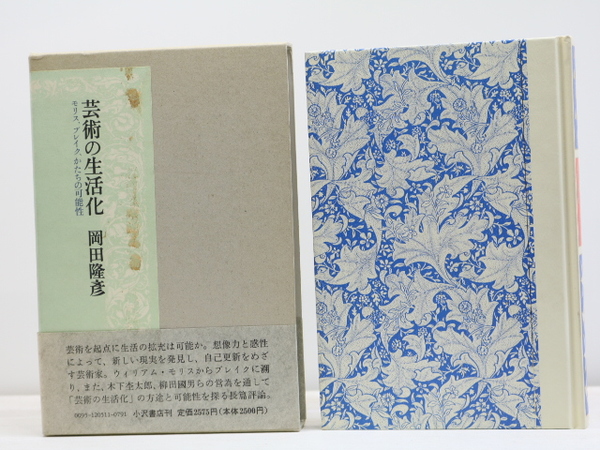 芸術の生活化
モリス、ブレイク、かたちの可能性
岡田隆彦
芸術を起点に生活の拡充は可能か。想像力と感性
によって、新しい現実を発見し、自己更新をめざ
す芸術家。ウィリアム・モリスからブレイクに溯
り、また、木下杢太郎、柳田國男らの営為を通して
「芸術の生活化」の方途と可能性を探る長篇評論。
0095-120311-0755 小沢書店刊 定価2575円(本体2500円)